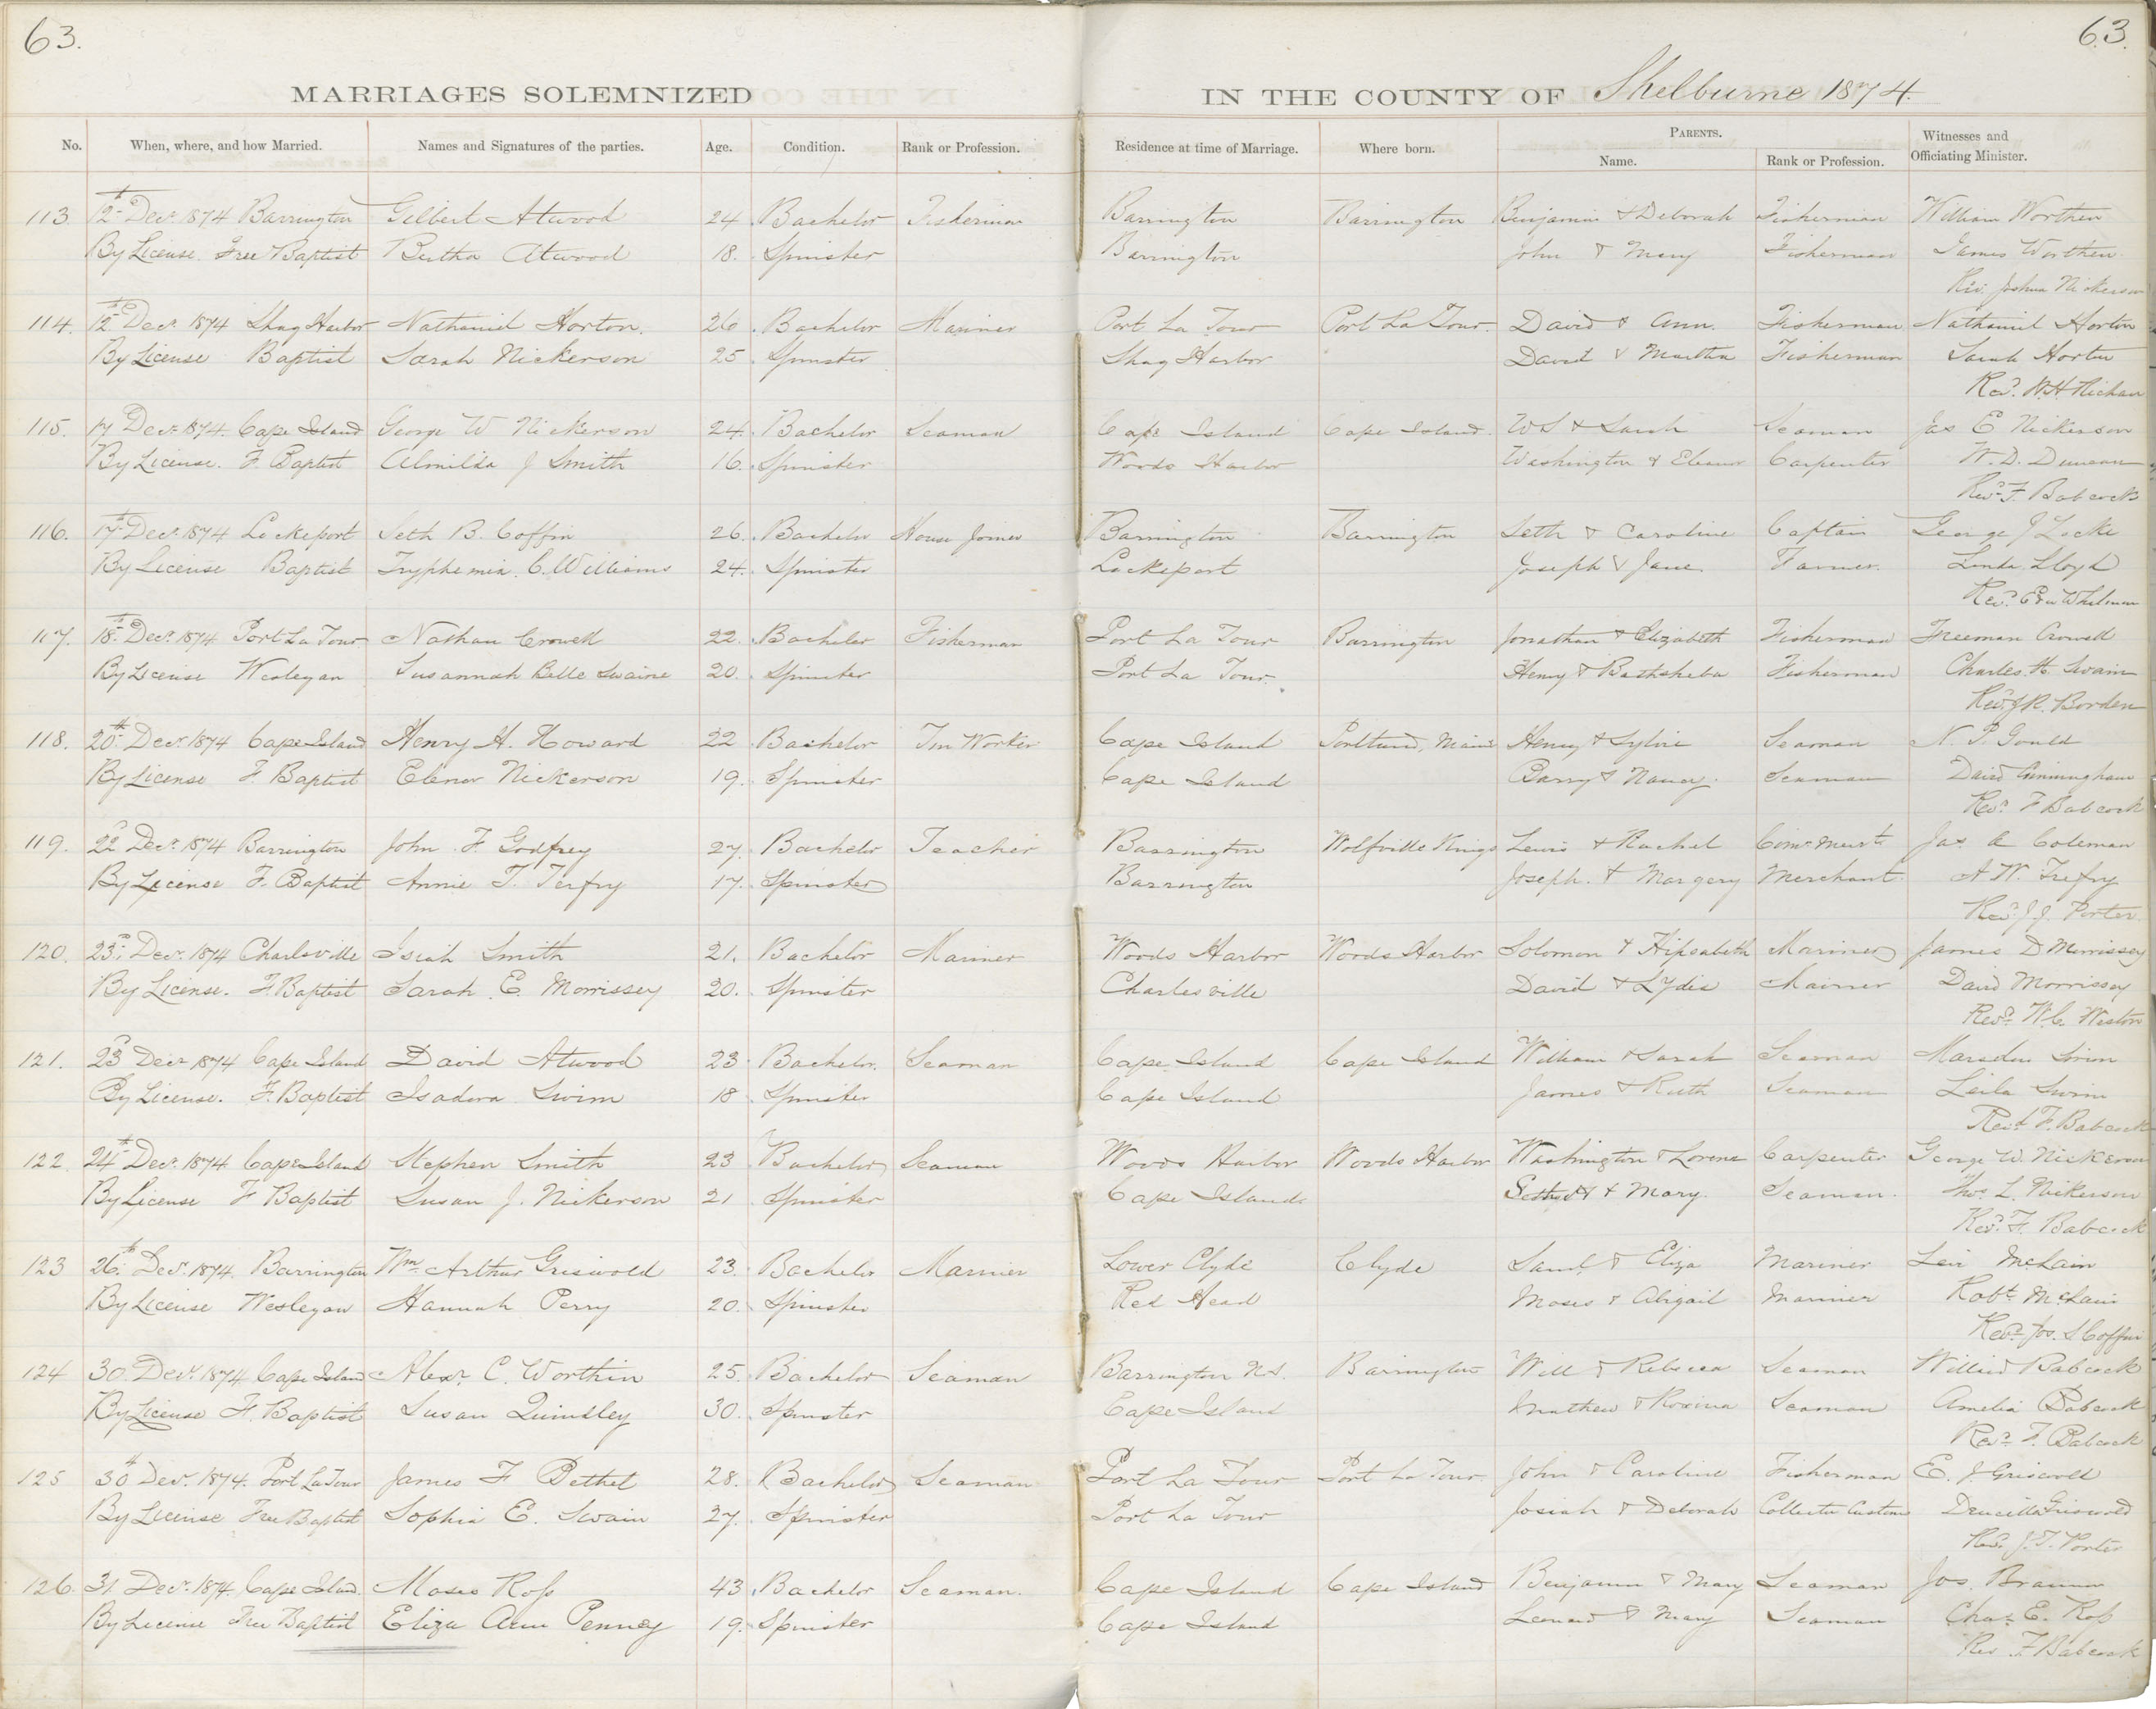 63.
63.
MARRIAGES SOLEMNIZED
IN THE COUNTY OF Shelburne 1874.
No. When, where, and how Married. Names and Signatures of the parties. Age. Condition. Rank or Profession. Residence at time of Marriage. Where born. PARENTS. Name. Rank or Profession. Witnesses and Officiating Minister.
113 12th Decr 1874 Barrington Gilbert Atwood 24 Bachelor Fisherman Barrington Barrington Benjamin & Deborah Fisherman William Worthen
By License Free Baptist Bertha Atwood 18. Spinster Barrington John & Mary Fisherman James Worthen
Rev. Joshua Nickerson
114. 12th Decr 1874 Shag Harbor Nathaniel Horton. 26. Bachelor Mariner Port La Tour Port La Tour. David & Ann. Fisherman Nathaniel Horton
By License Baptist Sarah Nickerson 25 Spinster Shag Harbor David & Martha Fisherman Sarah Horton
Revd. W.H. Richan
115. 17 Decr 1874. Cape Island George W Nickerson 24. Bachelor Seaman Cape Island Cape Island. WS & Sarah Seaman Jas E Nickerson
By License. F. Baptist Almilda J Smith 16. Spinster Woods Harbor Washington & Eleanor Carpenter W. D. Duncan
Revd F. Babcock
116. 17th Decr 1874 Lockeport Seth B. Coffin 26. Bachelor House Joiner Barrington Barrington Seth & Caroline Captain George J Locke
By License Baptist Tryphemia C. Williams 24. Spinster Lockeport Joseph & Jane. Farmer. Lloyd
Revd.
117. 18th Decr 1874 Port La Tour Nathan Crowell 22. Bachelor Fisherman Port La Tour Barrington Jonathan & Elizabeth Fisherman Freeman Crowell
By License Wesleyan Susannah Belle Swaine 20. Spinster Port La Tour. Henry & Bathsheba Fisherman Charles H. Swain
Revd J.R. Borden
118. 20th Decr 1874 Cape Island Henry H. Howard 22 Bachelor Tin Worker Cape Island Portland, Maine Henry & Sylvie Seaman N. P. Gould
By License F Baptist Elenor Nickerson 19. Spinster Cape Island Barry & Nancy. Seaman David Cunningham
Revd F Babcock
119. 22d Decr 1874 Barrington John F. Godfrey 27. Bachelor Teacher Barrington Wolfville Kings Lewis & Rachel Comn Mercht Jas A Coleman
By License F. Baptist Annie T. Terfry 17. Spinster Barrington Joseph. & Margery Merchant. A W. Trefry
Revd J.J. Porter.
120. 23d Decr 1874 Charlsville Isiah Smith 21. Bachelor Mariner Woods Harbor Woods Harbor Solomon & Hipsabeth Mariner James D Morrissey
By License. F. Baptist Sarah E. Morrissey 20. Spinster Charlesville David & Lydia Mariner David Morrissey
Revd W.C. Weston
121. 23d Decr 1874 Cape Island David Atwood 23 Bachelor. Seaman Cape Island Cape Island William & Sarah Seaman Marsden Swim
By License. F. Baptist Isadora Swim 18 Spinster Cape Island James & Ruth Seaman Leila Swim
Revd F. Babcock
122. 24th Decr 1874 Cape Island Stephen Smith 23 Bachelor Seaman Woods Harbor Woods Harbor Washington & Lorena Carpenter George W. Nickerson
By License F Baptist Susan J. Nickerson 21 Spinster Cape Island & Mary. Seaman. Thos L. Nickerson
Revd. F. Babcock
123 26th Decr 1874. Barrington Wm Arthur Griswold 23. Bachelor Mariner Lower Clyde Clyde Saml & Eliza Mariner Levi McLain
By License Wesleyan Hannah Perry 20. Spinster Red Head Moses & Abigail Mariner Robt McLain
Revd Jos. S Coffin
124 30. Decr 1874 Cape Island Alexr C. Worthin 25. Bachelor Seaman Barrington N.S. Barrington Will & Rebecca Seaman Willied Babcock
By License F. Baptist Susan Quinsley 30. Spinster Cape Island Mathew & Rosina Seaman Amelia Babcock
Revd F. Babcock
125 30th Decr 1874. Port La Tour James F Bethel 28. Bachelor Seaman Port La Tour Port La Tour. John & Caroline Fisherman E. J. Griswold
By License Free Baptist Sophia E. Swain 27. Spinster Port La Tour Josiah & Deborah Collector Customs Drucilla Griswold
Revd. J. J. Porter
126. 31. Decr 1874. Cape Island. Moses Ross 43. Bachelor Seaman. Cape Island Cape Island Benjamin & Mary Seaman Jos. Brannen
By License Free Baptist Eliza Ann Penney 19. Spinster Cape Island Leonard & Mary Seaman Chas E. Ross
Rev F Babcock